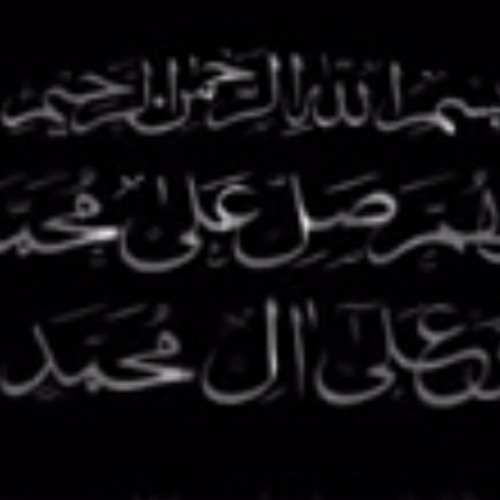 بسم الله الرحمن الرحيم
هم صل على محمد
وعلى ال محمد